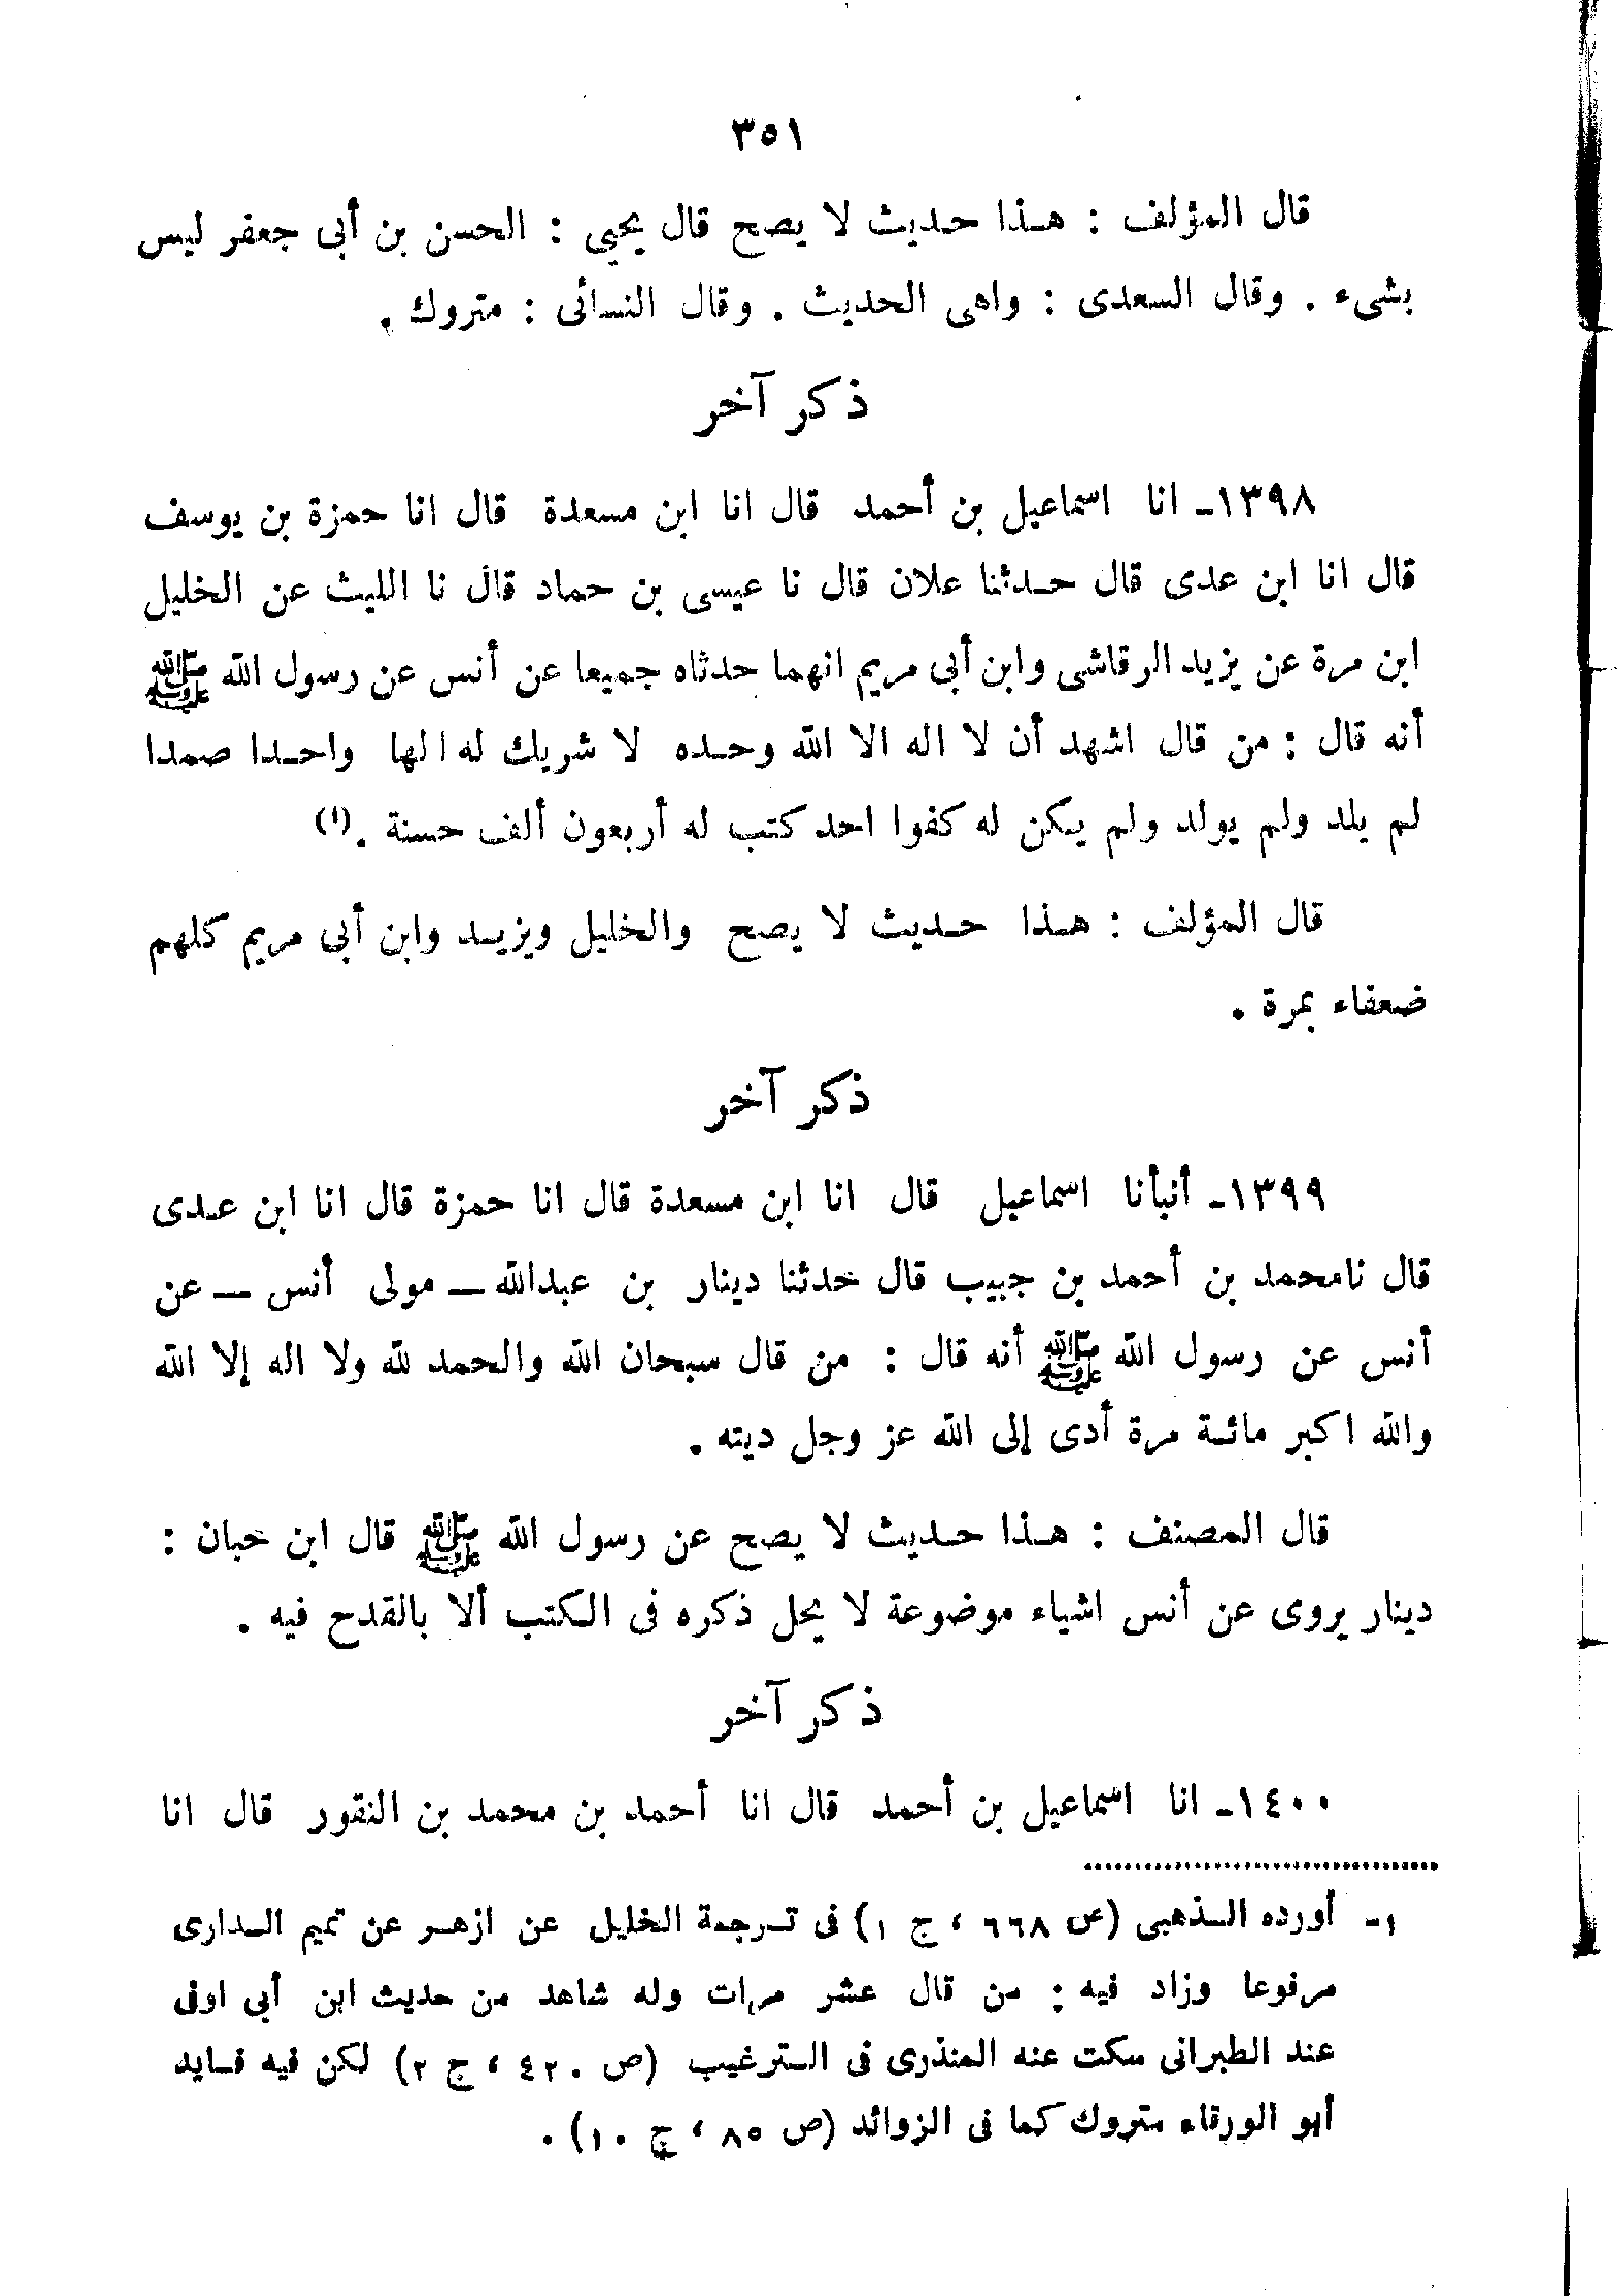 ٣٥١
قال المؤلف : هـذا حـديث لا يصح قال يحيى : الحسن بن أبى جعفر ليس
بشىء . وقال السعدى : واهى الحديث . وقال النسائى : متروك .
ذكر آخر
١٣٩٨ـ انا اسماعيل بن أحمد قال انا ابن مسعدة قال انا حمزة بن يوسف
قال انا ابن عدى قال حـدثنا علان قال نا عيسى بن حماد قال نا الليث عن الخليل
ابن مرة عن يزيد الرقاشى وابن أبى مريم انهما حدثاه جميعا عن أنس عن رسول الله ﷺ
أنه قال : من قال اشهد أن لا اله الا الله وحـده لا شريك له الها واحـدا صمدا
لم يلد ولم يولد ولم يكن له كفوا احد كتب له أربعون ألف حسنة .(١)
قال المؤلف : هـذا حـديث لا يصح والخليل ويزيـد وابن أبى مريم كلهم
ضعفاء بمرة .
ذكر آخر
١٣٩٩ـ أنبأنا اسماعيل قال انا ابن مسعدة قال انا حمزة قال انا ابن عـدى
قال نامحمد بن أحمد بن جبيب قال خدثنا دينار بن عبدالله ــ مولى أنس ــ عن
أنس عن رسول الله ﷺ أنه قال : من قال سبحان الله والحمد لله ولا اله إلا الله
والله اكبر مائـة مرة أدى إلى الله عز وجل ديته .
قال المصنف : هـذا حـديث لا يصح عن رسول الله ﷺ قال ابن خبان :
دينار يروى عن أنس اشياء موضوعة لا يحل ذكره فى الـكتب ألا بالقدح فيه .
ذكر آخر
١٤٠٠ـ انا اسماعيل بن أحمد قال انا أحمد بن محمد بن النقور قال انا
١- أورده الـذهبى (ص ٦٦٨ ، ج ١) فى تـرجمة الخليل عن ازهـر عن تميم الـدارى
مرفوعا وزاد فيه : من قال عشر مرات وله شاهد من حديث ابن أبى اوفى
عند الطبرانى سكت عنه المنذرى فى الـترغيب (ص ٤٢٠ ، ج ٢) لكن فيه فـايد
أبو الورقاء متروك كما فى الزوائد (ص ٨٥ ، ج ١٠) .